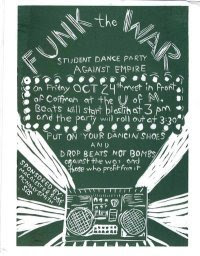 FUNK the WAR
STUDENT DANCE PARTY
AGAINST EMPIRE
on Friday OCT 24th meet in Front
of Coffman at the U of M.
Beats will start blastin at 3 pm
and the party will roll out at 3:30
PUT ON YOUR DANCIN SHOES
AND
DROP BEATS NOT BOMBS
against the war and
those who profit from it
SPONSORED BY
SDS